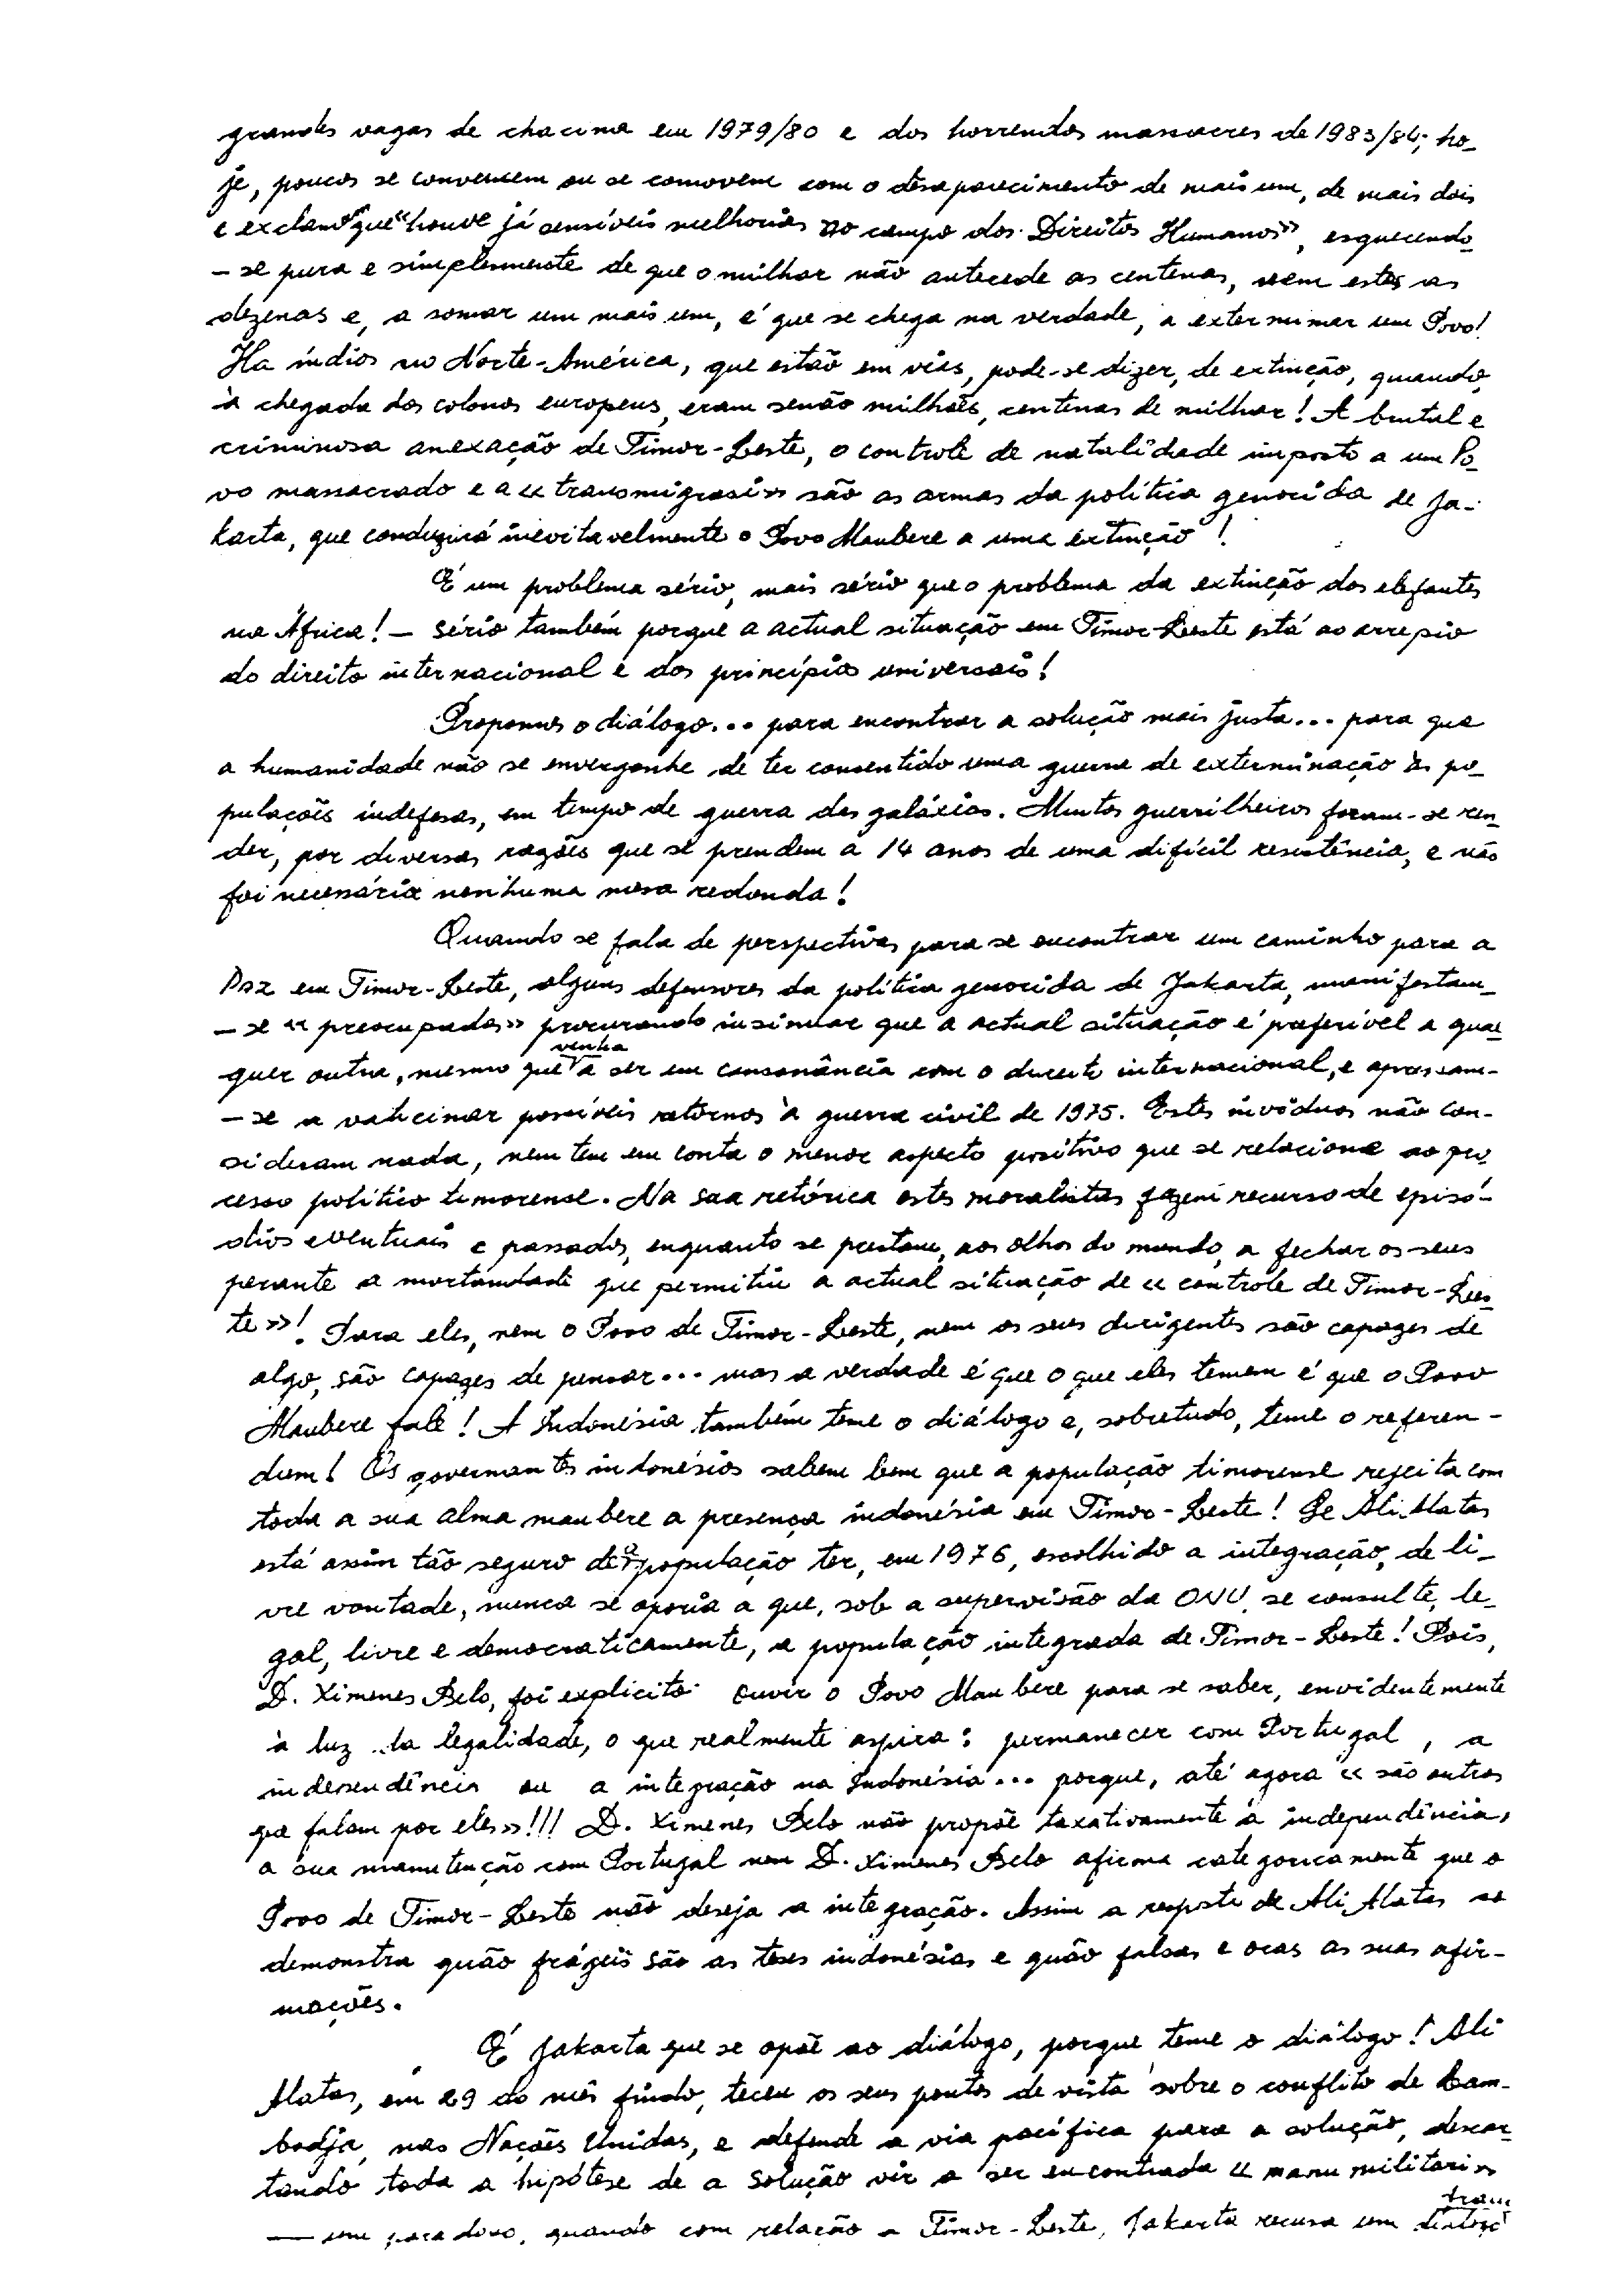 grandes vagas de chacina em 1979/80 e dos horrendos massacres de 1983/84; ho-
je, poucos se convencem ou se comovem com o desaparecimento de mais um, de mais dois
e exclamam que "houve já sensíveis melhorias no campo dos Direitos Humanos», esquecendo
-se pura e simplesmente de que o milhar não antecede as centenas, nem estas as
dezenas e, a somar um mais um, é que se chega na verdade, a exterminar um Povo!
Ha índios no Norte-América, que estão em vias, pode-se dizer, de extinção, quando,
à chegada dos colonos europeus, eram senão milhões, centenas de milhar! A brutal e
criminosa anexação de Timor-Leste, o controle de natalidade imposto a um Po-
vo massacrado e a «transmigrasi» são as armas da política genocida de Ja-
karta, que conduzirá inevitavelmente o Povo Maubere a uma extinção!
É um problema sério, mais sério que o problema da extinção dos elefantes
na África! - sério também porque a actual situação em Timor-Leste está ao arrepio
do direito internacional e dos princípios universais!
Propomos o diálogo... para encontrar a solução mais justa... para que
a humanidade não se envergonhe de ter consentido uma guerra de exterminação às po-
pulações indefesas, em tempo de guerra das galáxias. Muitos guerrilheiros foram-se ren-
der, por diversas razões que se prendem a 14 anos de uma difícil resistência, e não
foi necessária nenhuma mesa redonda!
Quando se fala de perspectivas para se encontrar um caminho para a
Paz em Timor-Leste, alguns defensores da política genocida de Jakarta, manifestam-
-se «preocupados» procurando insinuar que a actual situação é preferível a qual-
quer outra, mesmo que venha a ser em consonância com o direito internacional, e apressam-
-se a vaticinar possíveis retornos à guerra civil de 1975. Estes invíduos não con-
sideram nada, nem tem em conta o menor aspecto positivo que se relacione ao pro-
cesso político timorense. Na sua retórica estes moralistas fazem recurso de episó-
dios eventuais e passados, enquanto se prestam, aos olhos do mundo, a fechar os seus
perante a mortandade que permitiu a actual situação de «controle de Timor-Les-
te»! Para eles, nem o Povo de Timor-Leste, nem os seus dirigentes são capazes de
algo, são capazes de pensar... mas a verdade é que o que eles temem é que o Povo
Maubere fale! A Indonésia também teme o diálogo e, sobretudo, teme o referen-
dum! Os governantes indonésios sabem bem que a população timorense rejeita com
toda a sua alma maubere a presença indonésia em Timor-Leste! Se Ali Alatas
está assim tão seguro de a população ter, em 1976, escolhido a integração, de li-
vre vontade, nunca se oporia a que, sob a supervisão da ONU, se consulte, le-
gal, livre e democraticamente, a população integrada de Timor-Leste! Pois,
D. Ximenes Belo, foi explicito: ouvir o Povo Maubere para se saber, envidentemente
à luz da legalidade, o que realmente aspira: permanecer com Portugal, a
independência ou a integração na Indonésia... porque, até agora «são outros
que falam por eles»!!! D. Ximenes Belo não propõe taxativamente a independência,
a sua manutenção com Portugal nem D. Ximenes Belo afirma categoricamente que o
Povo de Timor-Leste não deseja a integração. Assim a resposta de Ali Alatas só
demonstra quão frágeis são as teses indonésias e quão falsas e ocas as suas afir-
mações.
É Jakarta que se opõe ao diálogo, porque teme o diálogo! Ali
Alatas, em 29 do mês findo, teceu os seus pontos de vista sobre o conflito de Cam-
bodja, nas Nações Unidas, e defende a via pacífica para a solução, descar-
tando toda a hipótese de a solução vir a ser encontrada «manu militari»
— um paradoxo, quando com relação a Timor-Leste, Jakarta recusa um